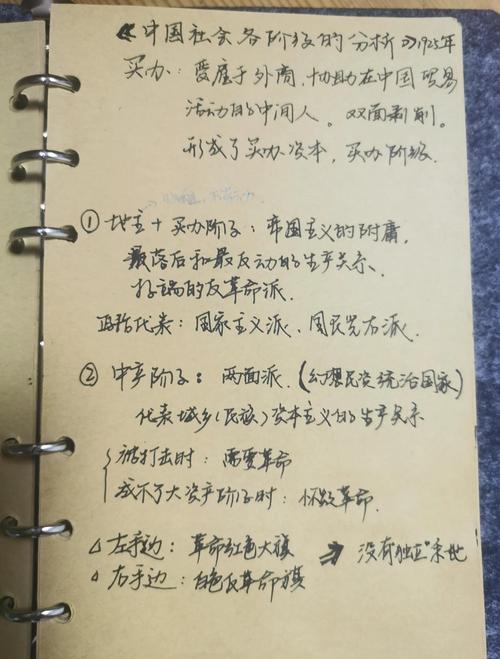 《中国社会各阶级的分析》1925年
买办：受雇于外商，协助在中国贸易
活动的中间人。双面剥削。
形成了买办资本，买办阶级.
① 地主+买办阶级：帝国主义的附庸，
最落后和最反动的生产关系、
极端的反革命派.
政治代表：国家主义派、国民党右派.
② 中产阶级：两面派.（幻想民资统治国家）
代表城乡（民族）资本主义的生产关系
被打击时：需要革命
成不了大资产阶级时：怀疑革命.
左手边：革命红色大旗 ⇒ 没有独立"余地
右手边：白色反革命旗